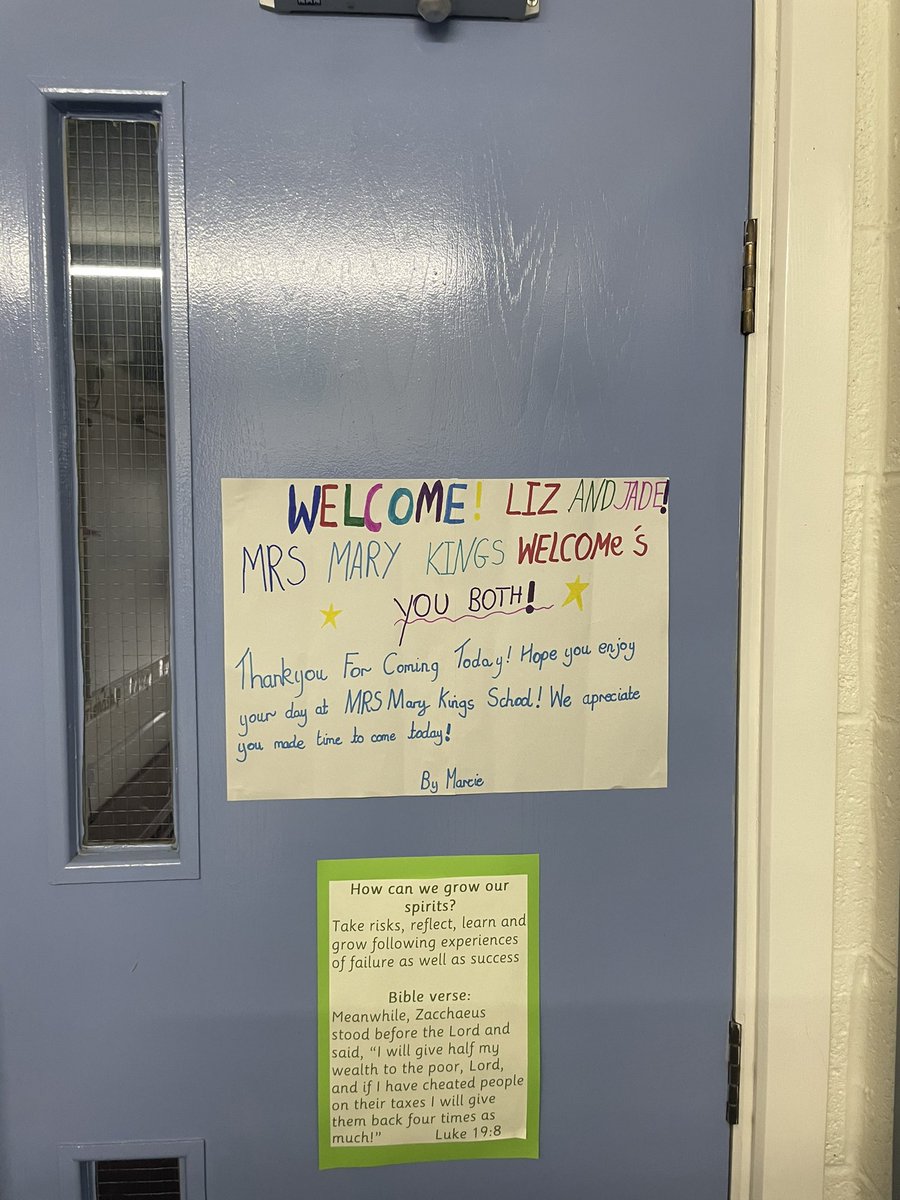 WELCOME! LIZ AND JADE!
MRS MARY KINGS WELCOME'S
YOU BOTH!
Thankyou For Coming Today! Hope you enjoy
your day at MRS Mary Kings School! We apreciate
you made time to come today!
By Marcie
How can we grow our
spirits?
Take risks, reflect, learn and
grow following experiences
of failure as well as success
Bible verse:
Meanwhile, Zacchaeus
stood before the Lord and
said, “I will give half my
wealth to the poor, Lord,
and if I have cheated people
on their taxes I will give
them back four times as
much!” Luke 19:8